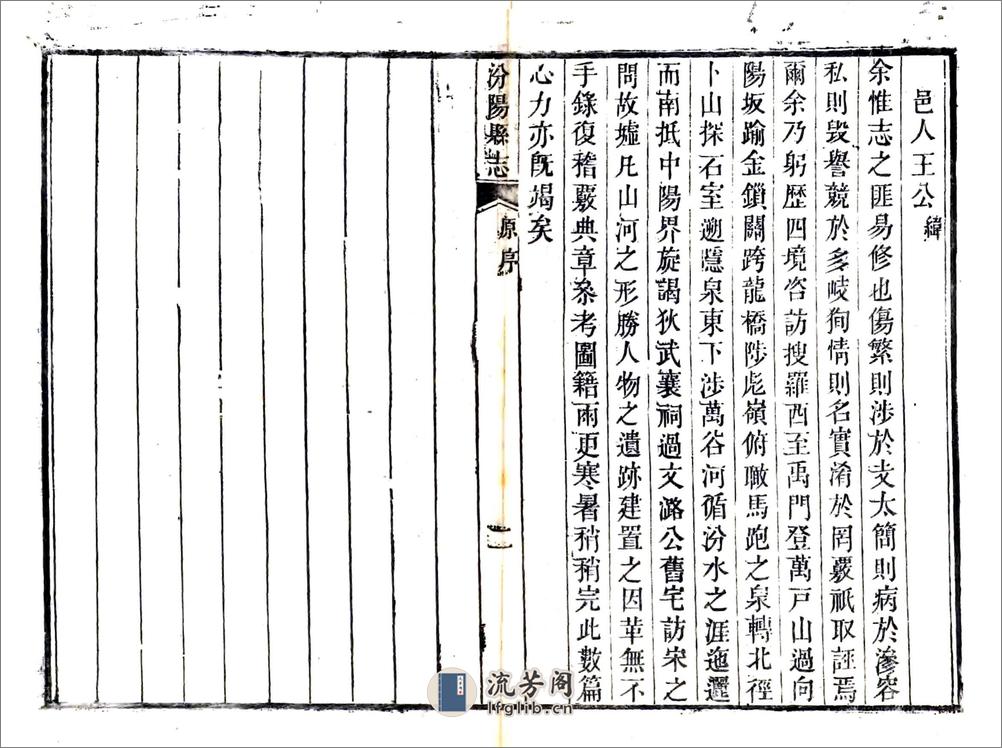 邑人王公緯
余惟志之匪易修也傷繁則涉於支太簡則病於滲容
私則毀譽競於多岐狥情則名實淆於罔覈祇取誣焉
爾余乃躬歷四境咨訪搜羅西至禹門登萬戶山過向
陽坂踰金鎖關跨龍橋陟彪嶺俯瞰馬跑之泉轉北徑
卜山探石室遡隱泉東下涉萬谷河循汾水之涯迤邐
而南抵中陽界旋謁狄武襄祠過文潞公舊宅訪宋之
問故墟凡山河之形勝人物之遺跡建置之因革無不
手錄復稽覈典章叅考圖籍兩更寒暑稍稍完此數篇
心力亦旣竭矣
汾陽縣志 原序 二
流芳阁
lfglib.cn